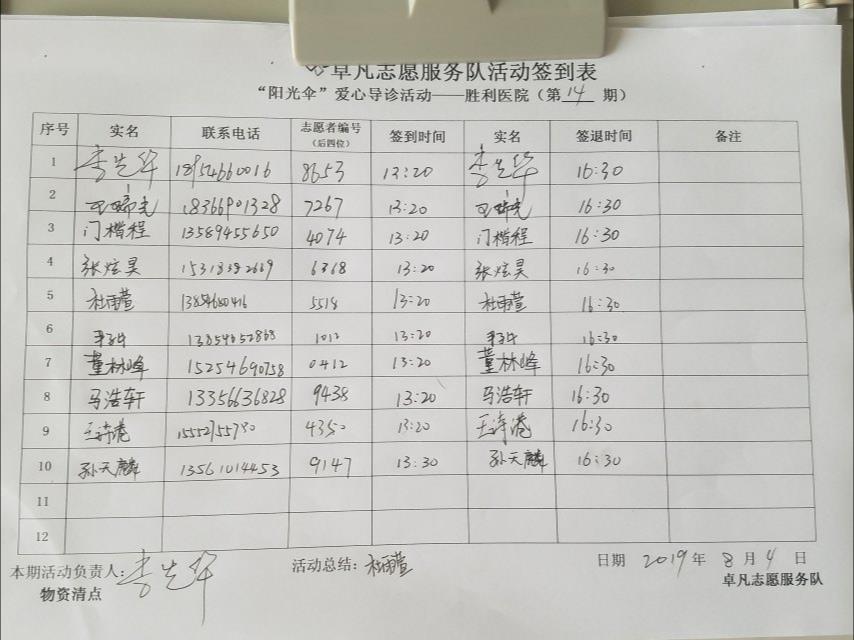 卓凡志愿服务队活动签到表
“阳光伞”爱心导诊活动——胜利医院（第 14 期）
序号 实名 联系电话 志愿者编号（后四位） 签到时间 实名 签退时间 备注
1 李先华 8653 13:20 李先华 16:30
2 18366901328 7267 13:20 16:30
3 门楷程 13589455650 4074 13:20 门楷程 16:30
4 张炫昊 6368 13:20 张炫昊 16:30
5 杜雨萱 13854680416 5518 13:20 杜雨萱 16:30
6 13854652868 1012 13:20 16:30
7 董林峰 15254690758 0412 13:20 董林峰 16:30
8 马浩轩 13356636828 9438 13:20 马浩轩 16:30
9 王诗港 4350 13:20 王诗港 16:30
10 孙天麟 13561014453 9147 13:30 孙天麟 16:30
11
12
本期活动负责人：李先华 活动总结：杜雨萱 日期 2019 年 8 月 4 日
物资清点 卓凡志愿服务队